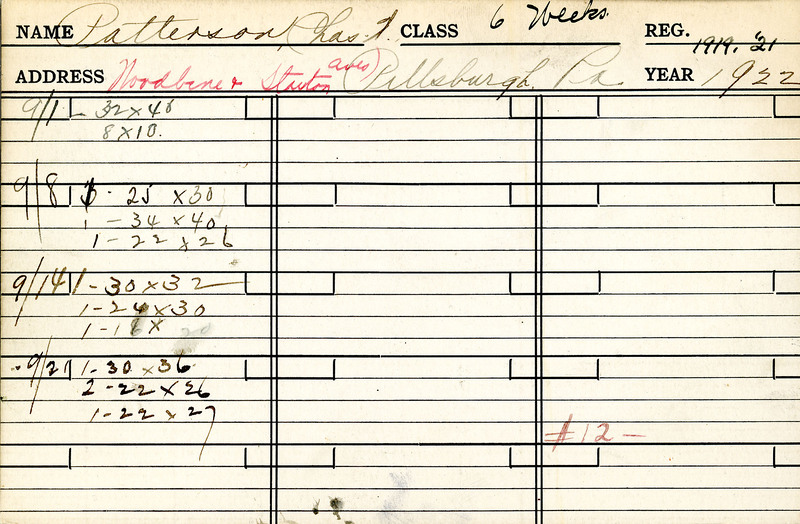 NAME Patterson, Chas. CLASS 6 Weeks. REG. 1919. '21
ADDRESS Woodbine & Stanton aves Pittsburgh, Pa. YEAR 1922
9/1 - 32 x 40
8 x 10.
9/8 - 25 x 30
1 - 34 x 40
1 - 22 x 26
9/14 1 - 30 x 32
1 - 24 x 30
1 - 18 x 20
9/21 1 - 30 x 36
2 - 22 x 26
1 - 22 x 27
#12 —